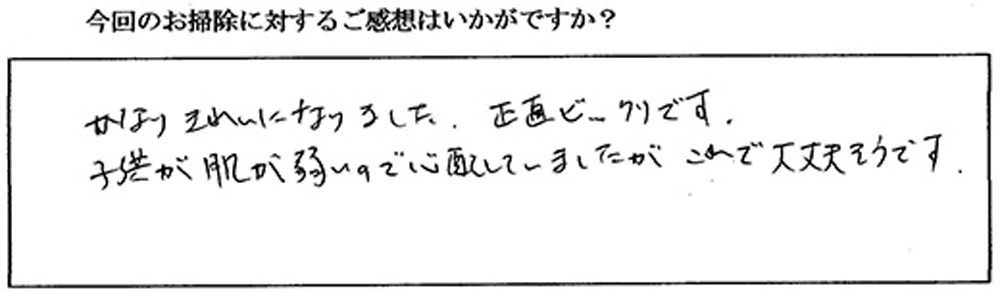 今回のお掃除に対するご感想はいかがですか?
かなりきれいになりました. 正直ビックリです.
子供が肌が弱いので心配していましたが これで大丈夫そうです.